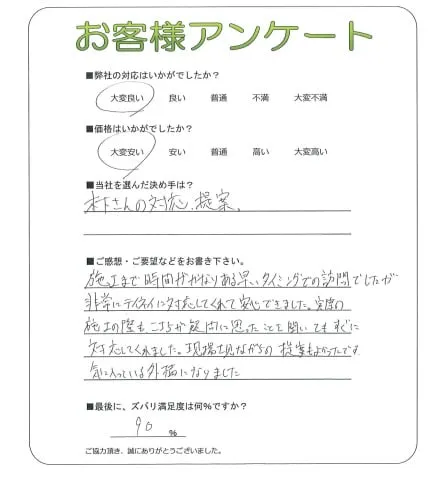 お客様アンケート
■弊社の対応はいかがでしたか？
大変良い 良い 普通 不満 大変不満
■価格はいかがでしたか？
大変安い 安い 普通 高い 大変高い
■当社を選んだ決め手は？
木下さんの対応、提案。
■ご感想・ご要望などをお書き下さい。
施工まで時間がかなりある早いタイミングでの訪問でしたが
非常にテイネイに対応してくれて安心できました。実際の
施工の際もこちらが疑問に思ったことを聞いてもすぐに
対応してくれました。現場現ながらの提案もよかったです
気に入っている外構になりました
■最後に、ズバリ満足度は何%ですか？
90 %
ご協力頂き、誠にありがとうございました。